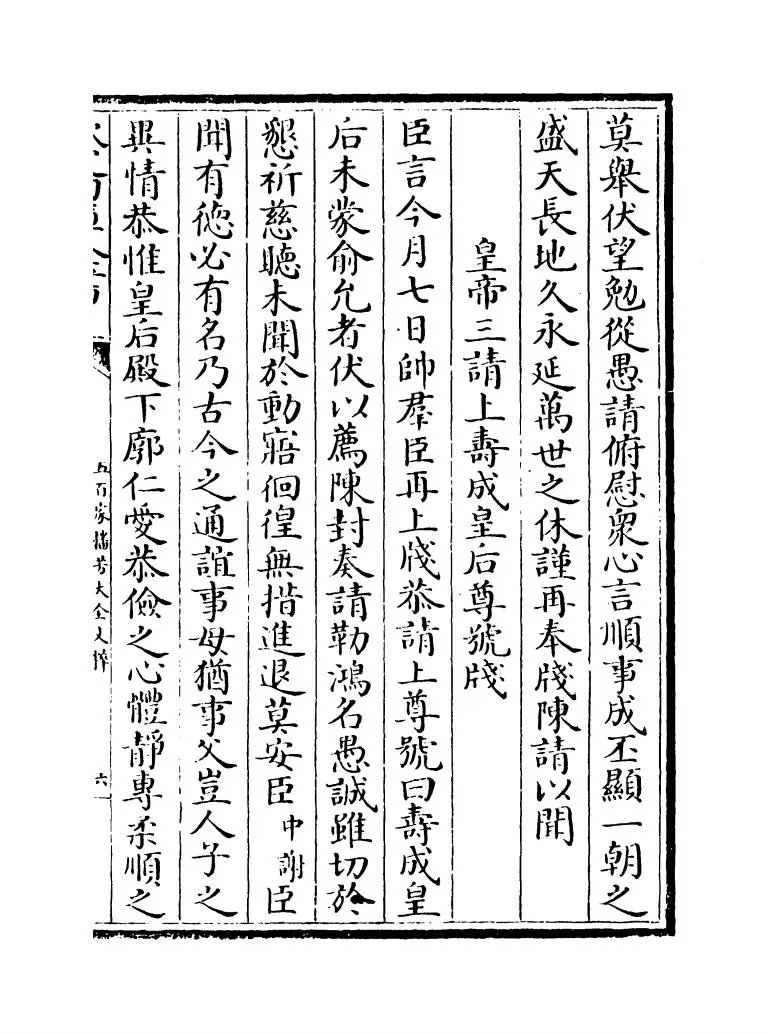 莫舉伏望勉從愚請俯慰衆心言順事成丕顯一朝之
盛天長地久永延萬世之休謹再奉牋陳請以聞
皇帝三請上壽成皇后尊號牋
臣言今月七日帥羣臣再上牋恭請上尊號曰壽成皇
后未蒙俞允者伏以薦陳封奏請勒鴻名愚誠雖切於
懇祈慈聽未聞於動寤佪徨無措進退莫安臣中謝臣
聞有徳必有名乃古今之通誼事母猶事父豈人子之
異情恭惟皇后殿下廓仁愛恭儉之心體靜專柔順之
五百家播芳大全文粹
六